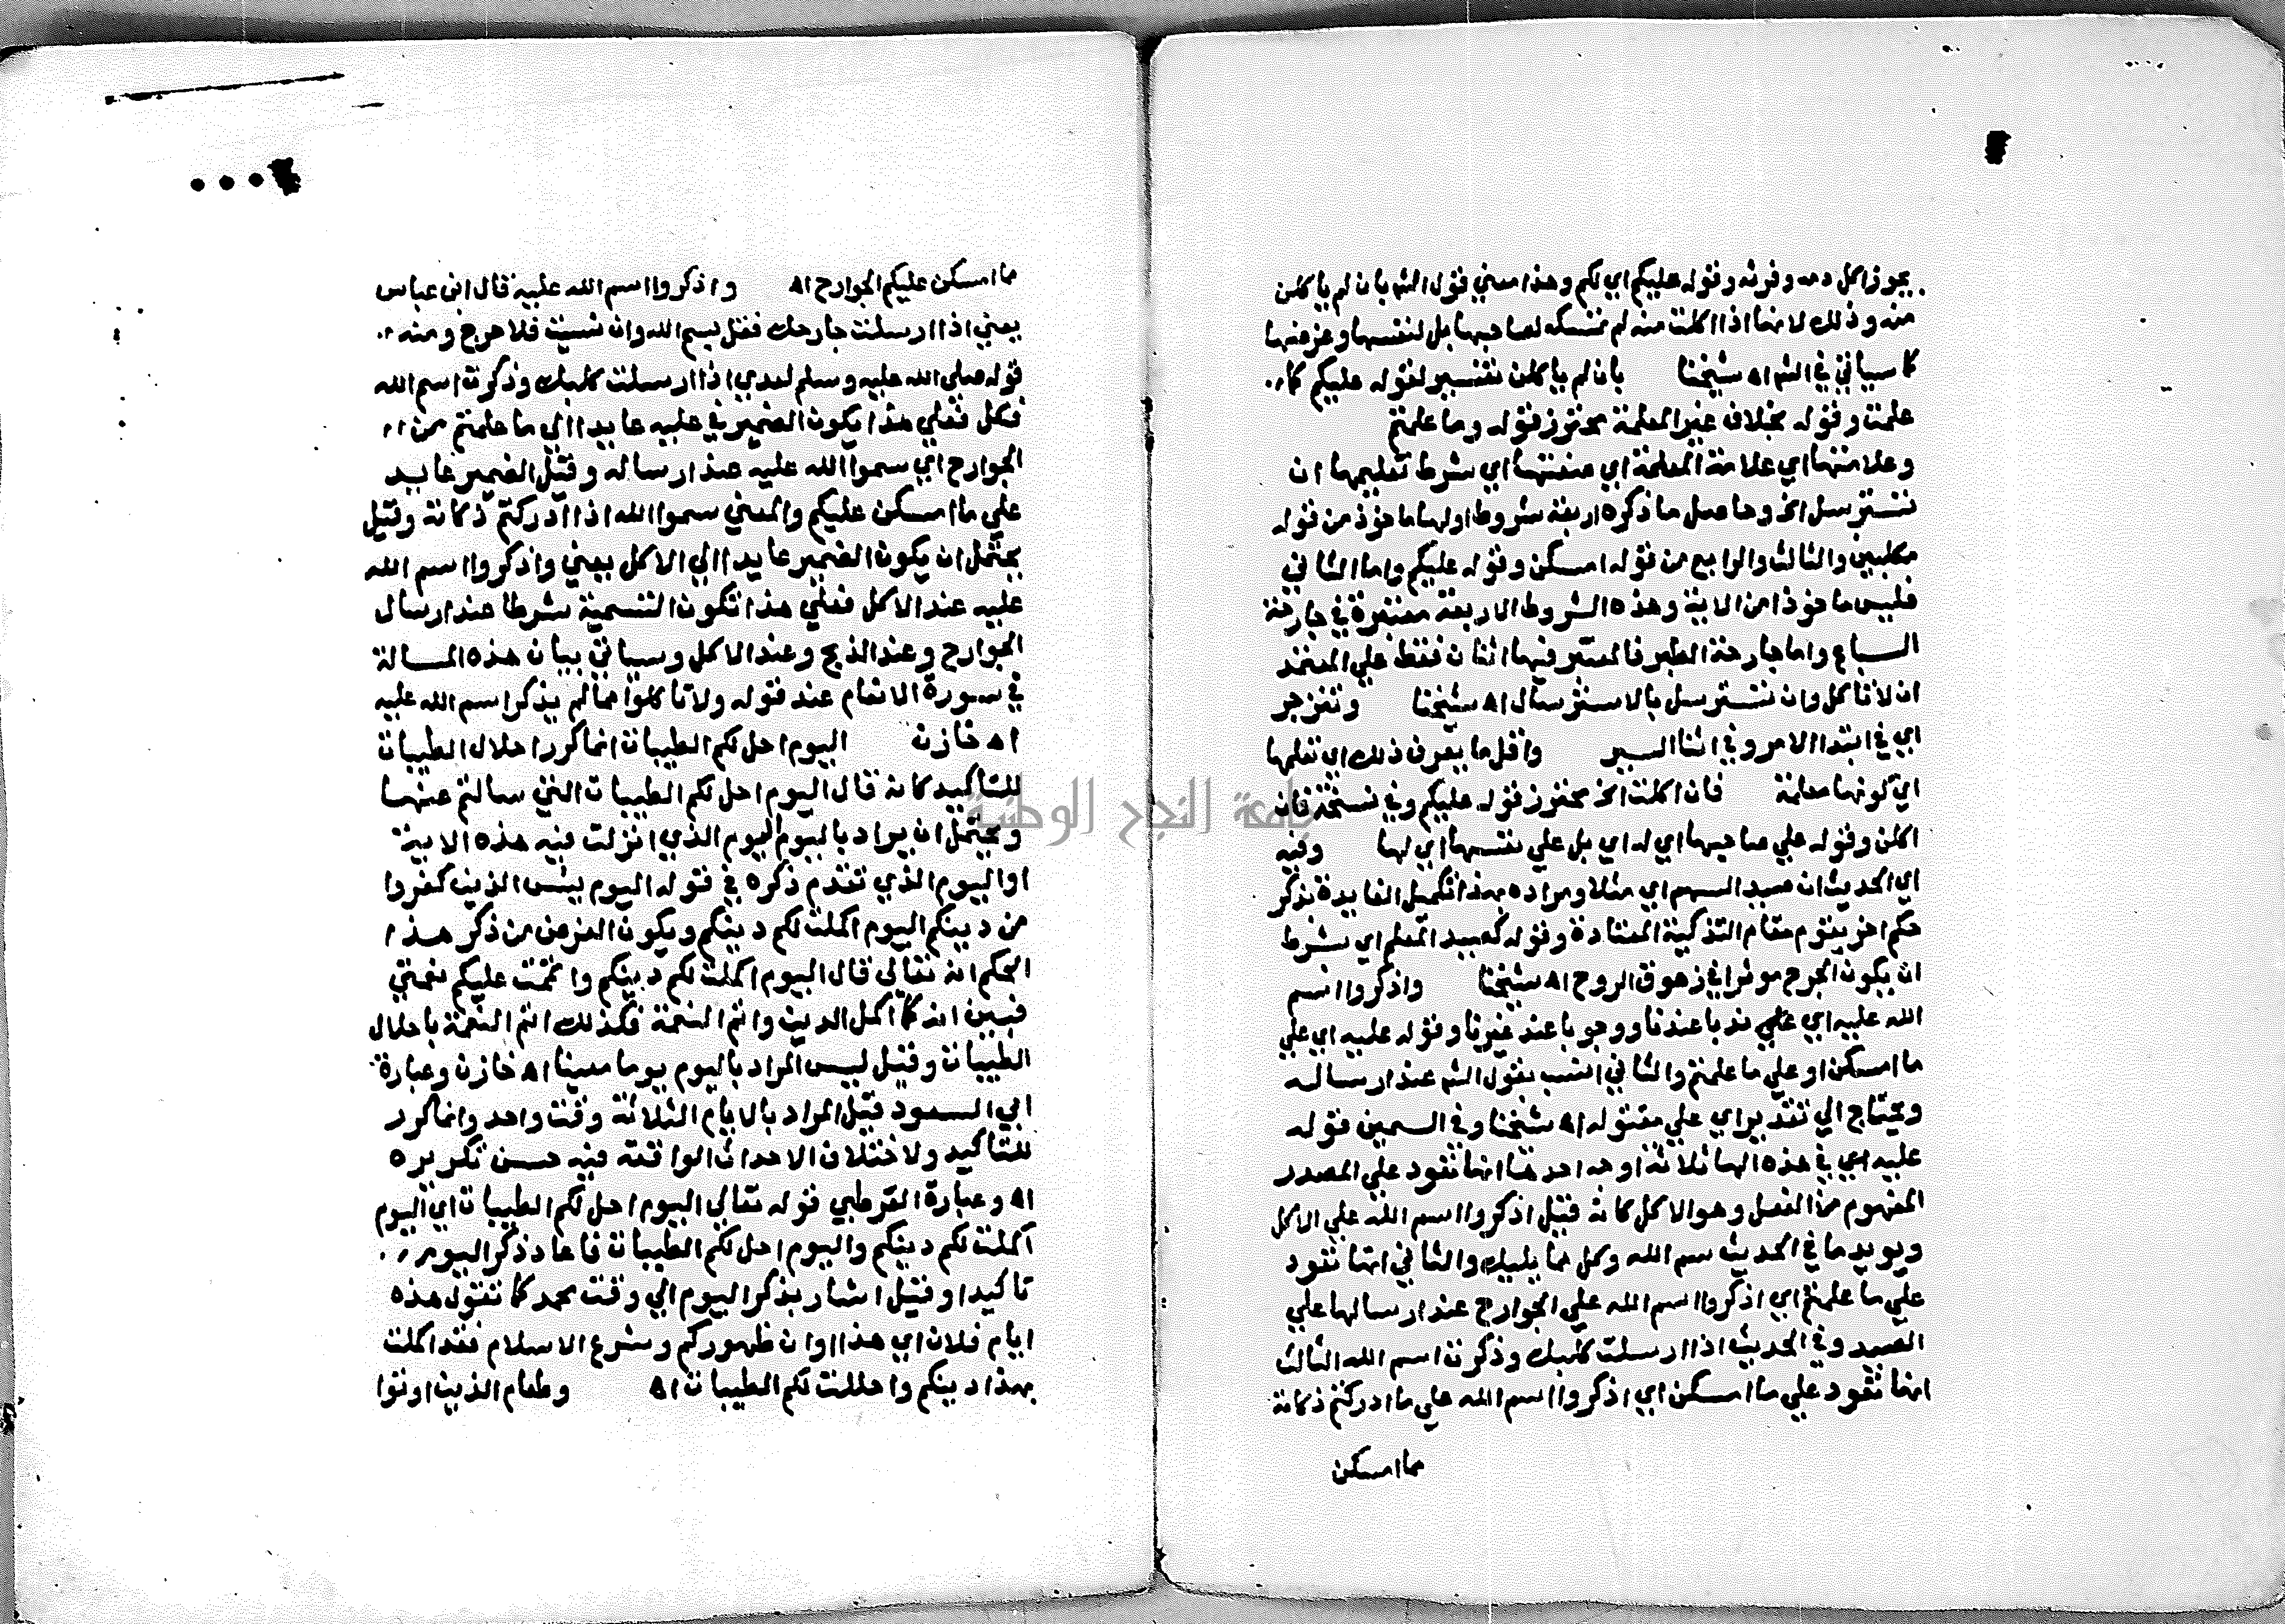 يجوز اكل دمه وفرثه وقوله عليكم اي لكم وهذا معني قول الش بان لم ياكلن
منه وذلك لانها اذا اكلت منه لم تمسكه لصاحبها بل لنفسها وغرضها
كا سياتي في الش اه شيخنا بان لم ياكلن تفسير لقوله عليكم كا
علمت وقوله بخلاف غير المعلمة محترز قوله وما علمتم
وعلامتها اي علامة المعلمة اي صفتها اي شرط تعليمها ان
تسترسل الخ وحاصل ما ذكره اربعة شروط اولها ماخوذ من قوله
مكلبين والثالث والرابع من قوله امسكن وقوله عليكم واما الثاني
فليس ماخوذا من الاية وهذه الشروط الاربعة معتبرة في جارحة
السباع واما جارحة الطير فالمعتبر فيها اثنان فقط علي المعتمد
ان لا تاكل وان تسترسل بالاسترسال اه شيخنا وتنزجر
اي في ابتدا الامر وفي اثنا السير واقل ما يعرف ذلك اي تعلمها
اي كونها معلمة فان اكلت الخ محترز قوله عليكم وفي نسخة فان
اكلن وقوله علي صاحبها اي له اي بل علي نفسها اي لها وفيه
اي الحديث ان صيد السهم اي مثلا ومراده بهذا تكميل الفايدة بذكر
حكم اخر يقوم مقام التذكية المعتادة وقوله كصيد المعلم اي بشرط
ان يكون الجرح موثرا في زهوق الروح اه شيخنا واذكروا اسم
الله عليه اي علي ندبا عندنا ووجوبا عند غيرنا وقوله عليه اي علي
ما امسكن او علي ما علمتم والثاني انسب بقول الش عند ارساله
ويحتاج الي تقدير اي علي مقتوله اه شيخنا وفي السمين قوله
عليه اي في هذه الها ثلاثة اوجه احدها انها تعود علي المصدر
المفهوم من الفعل وهو الاكل كانه قيل اذكروا اسم الله علي الاكل
ويويد ما في الحديث سم الله وكل مما يليك والثاني انها تعود
علي ما علمتم اي اذكروا اسم الله علي الجوارح عند ارسالها علي
الصيد وفي الحديث اذا ارسلت كلبك وذكرت اسم الله الثالث
انها تعود علي ما امسكن اي اذكروا اسم الله علي ما ادركتم ذكاته
مما امسكن
مما امسكن عليكم الجوارح اه واذكروا اسم الله عليه قال ابن عباس
يعني اذا ارسلت جارحك فقل بسم الله وان نسيت فلا حرج ومنه
قوله صلي الله عليه وسلم لعدي اذا ارسلت كلبك وذكرت اسم الله
فكل فعلي هذا يكون الضمير في عليه عايدا الي ما علمتم من
الجوارح اي سموا الله عليه عند ارساله وقيل الضمير عايد
علي ما امسكن عليكم والمعني سموا الله اذا ادركتم ذكاته وقيل
يحتمل ان يكون الضمير عايدا الي الاكل يعني واذكروا اسم الله
عليه عند الاكل فعلي هذا تكون التسمية شرطا عند ارسال
الجوارح وعند الذبح وعند الاكل وسياتي بيان هذه المسالة
في سورة الانعام عند قوله ولا تاكلوا مما لم يذكر اسم الله عليه
اه خازن اليوم احل لكم الطيبات انما كرر احلال الطيبات
للتاكيد كانه قال اليوم احل لكم الطيبات التي سالتم عنها
ويحتمل ان يراد باليوم اليوم الذي انزلت فيه هذه الاية
او اليوم الذي تقدم ذكره في قوله اليوم يئس الذين كفروا
من دينكم اليوم اكملت لكم دينكم ويكون الغرض من ذكر هذا
الحكم انه تعالي قال اليوم اكملت لكم دينكم واتممت عليكم نعمتي
فبين انه كما اكمل الدين واتم النعمة فكذلك اتم النعمة باحلال
الطيبات وقيل ليس المراد باليوم يوما معينا اه خازن وعبارة
ابي السعود قيل المراد بالايام الثلاثة وقت واحد وانما كرر
للتاكيد ولاختلاف الاحداث الواقعة فيه حسن تكريره
اه وعبارة القرطبي قوله تعالي اليوم احل لكم الطيبات اي اليوم
اكملت لكم دينكم واليوم احل لكم الطيبات فاعاد ذكر اليوم
تاكيدا وقيل اشار بذكر اليوم الي وقت محمد كما تقول هذه
ايام فلان اي هذا اوان ظهوركم وشرع الاسلام فقد اكملت
بهذا دينكم واحللت لكم الطيبات اه وطعام الذين اوتوا
جامعة النجاح الوطنية